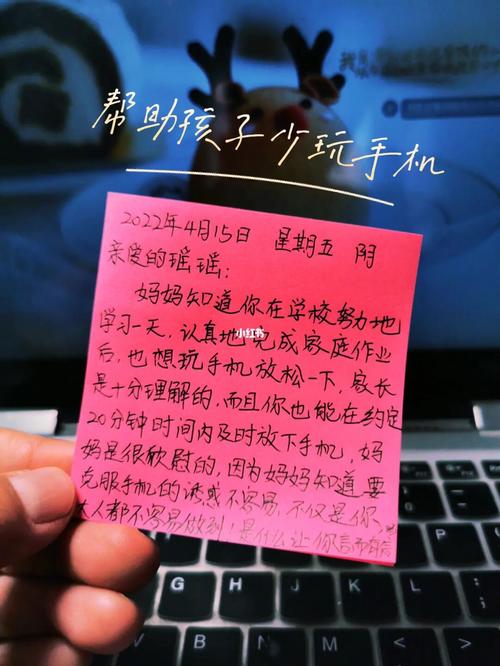 帮助孩子少玩手机
2022年4月15日 星期五 阴
亲爱的瑶瑶:
妈妈知道你在学校努力地
学习一天,认真地完成家庭作业
后,也想玩手机放松一下,家长
是十分理解的,而且你也能在约定
20分钟时间内及时放下手机,妈
妈是很欣慰的,因为妈妈知道要
克服手机的诱惑不容易,不仅是你、
大人都不容易做到!是什么让你言而有信
小红书
G
H
J
K
L
B
N
M